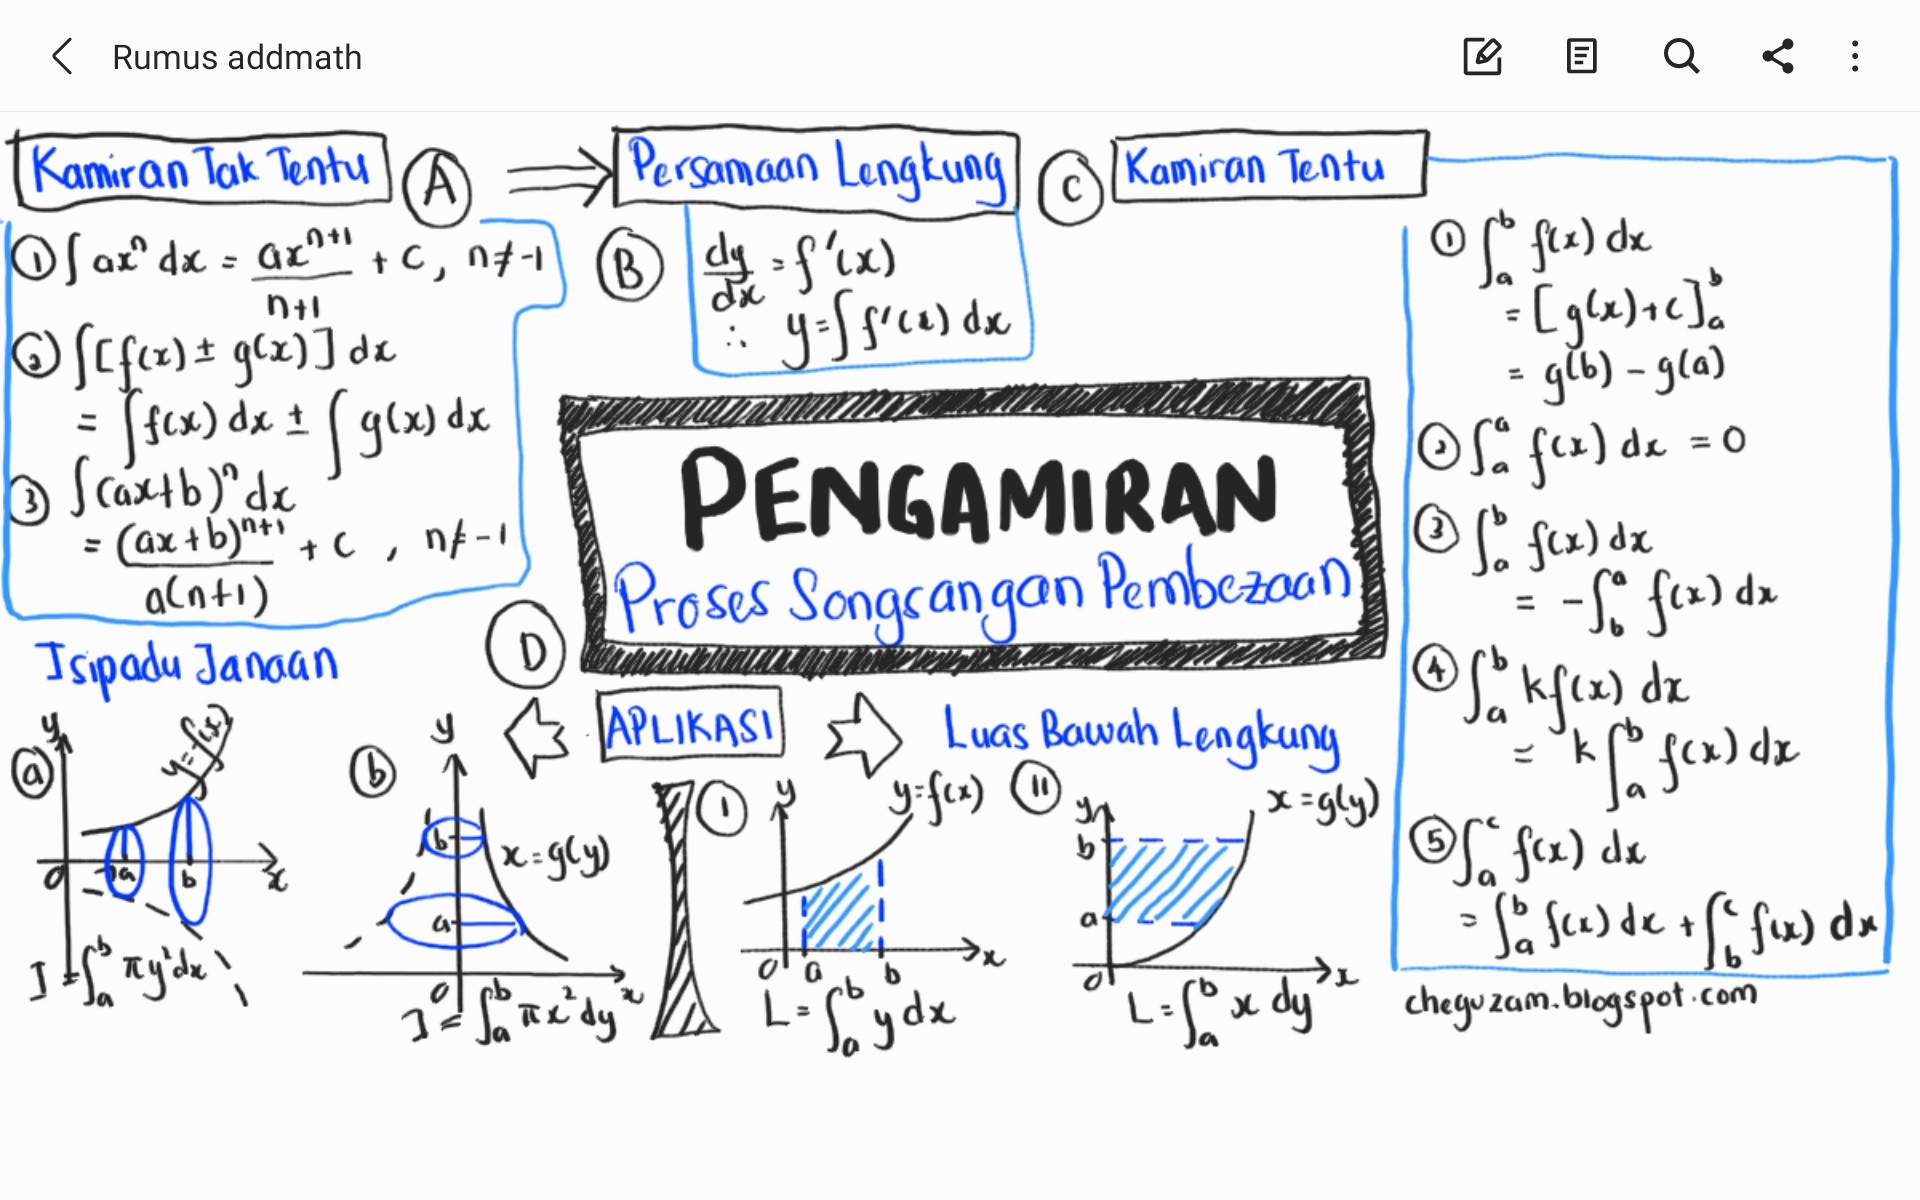 Rumus addmath
Kamiran Tak Tentu
A
① ∫ axⁿ dx = axⁿ⁺¹/n+1 + c, n ≠ -1
② ∫[f(x) ± g(x)] dx
= ∫ f(x) dx ± ∫ g(x) dx
③ ∫(ax+b)ⁿ dx
= (ax+b)ⁿ⁺¹/a(n+1) + c , n ≠ -1
Persamaan Lengkung
B
dy/dx = f'(x)
∴ y = ∫ f'(x) dx
C
Kamiran Tentu
① ∫ₐᵇ f(x) dx
= [g(x)+c]ₐᵇ
= g(b) - g(a)
② ∫ₐᵃ f(x) dx = 0
③ ∫ₐᵇ f(x) dx
= -∫_b^a f(x) dx
④ ∫ₐᵇ kf(x) dx
= k ∫ₐᵇ f(x) dx
⑤ ∫ₐᶜ f(x) dx
= ∫ₐᵇ f(x) dx + ∫_b^c f(x) dx
cheguzam.blogspot.com
PENGAMIRAN
Proses Songsangan Pembezaan
D
APLIKASI
Isipadu Janaan
a
y
y=f(x)
0
a
b
x
I = ∫ₐᵇ πy² dx
b
y
b
x=g(y)
a
0
x
I = ∫ₐᵇ πx² dy
Luas Bawah Lengkung
I
y
y=f(x)
0
a
b
x
L = ∫ₐᵇ y dx
II
y
x=g(y)
b
a
0
x
L = ∫ₐᵇ x dy